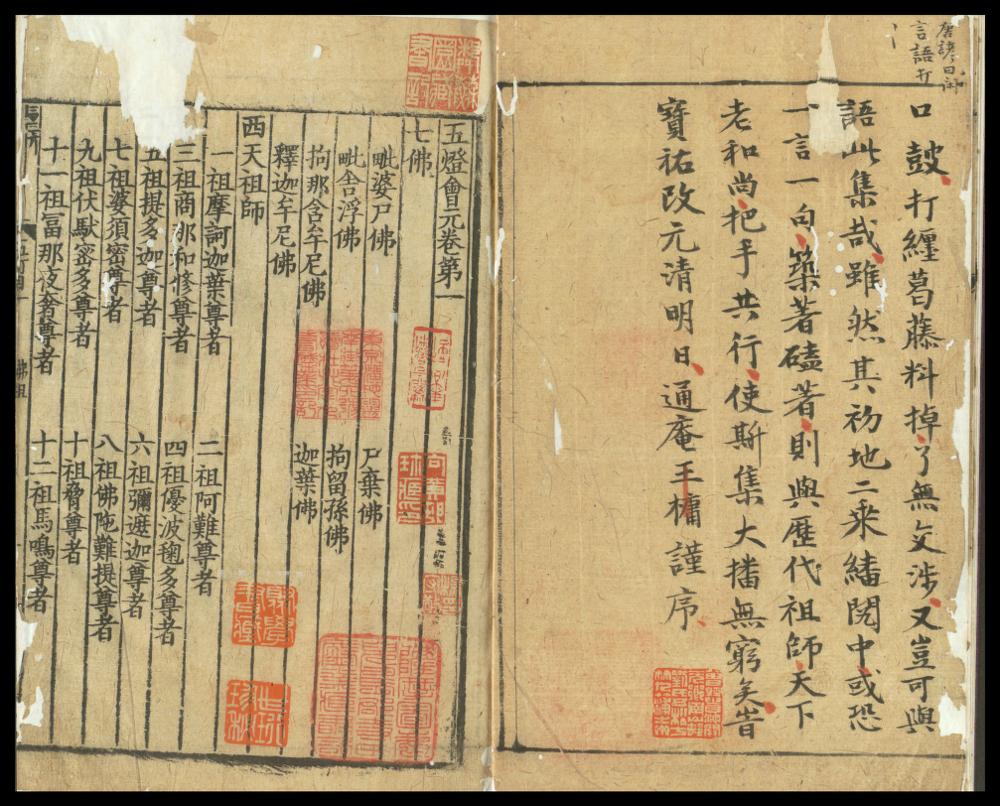 唐諺曰
言語
口鼓打纏葛藤料掉了無交涉又豈可與
語此集哉雖然其初地二乘繙閱中或恐
一言一句築著磕著則與歷代祖師天下
老和尚把手共行使斯集大播無窮矣旹
寶祐改元清明日通庵王槦謹序
五燈會元卷第一
七佛
毗婆尸佛 尸棄佛
毗舍浮佛 拘留孫佛
拘那含牟尼佛 迦葉佛
釋迦牟尼佛
西天祖師
一祖摩訶迦葉尊者 二祖阿難尊者
三祖商那和修尊者 四祖優波毱多尊者
五祖提多迦尊者 六祖彌遮迦尊者
七祖婆須密尊者 八祖佛陁難提尊者
九祖伏䭾密多尊者 十祖脅尊者
十一祖冨那夜奢尊者 十二祖馬鳴尊者
佛祖